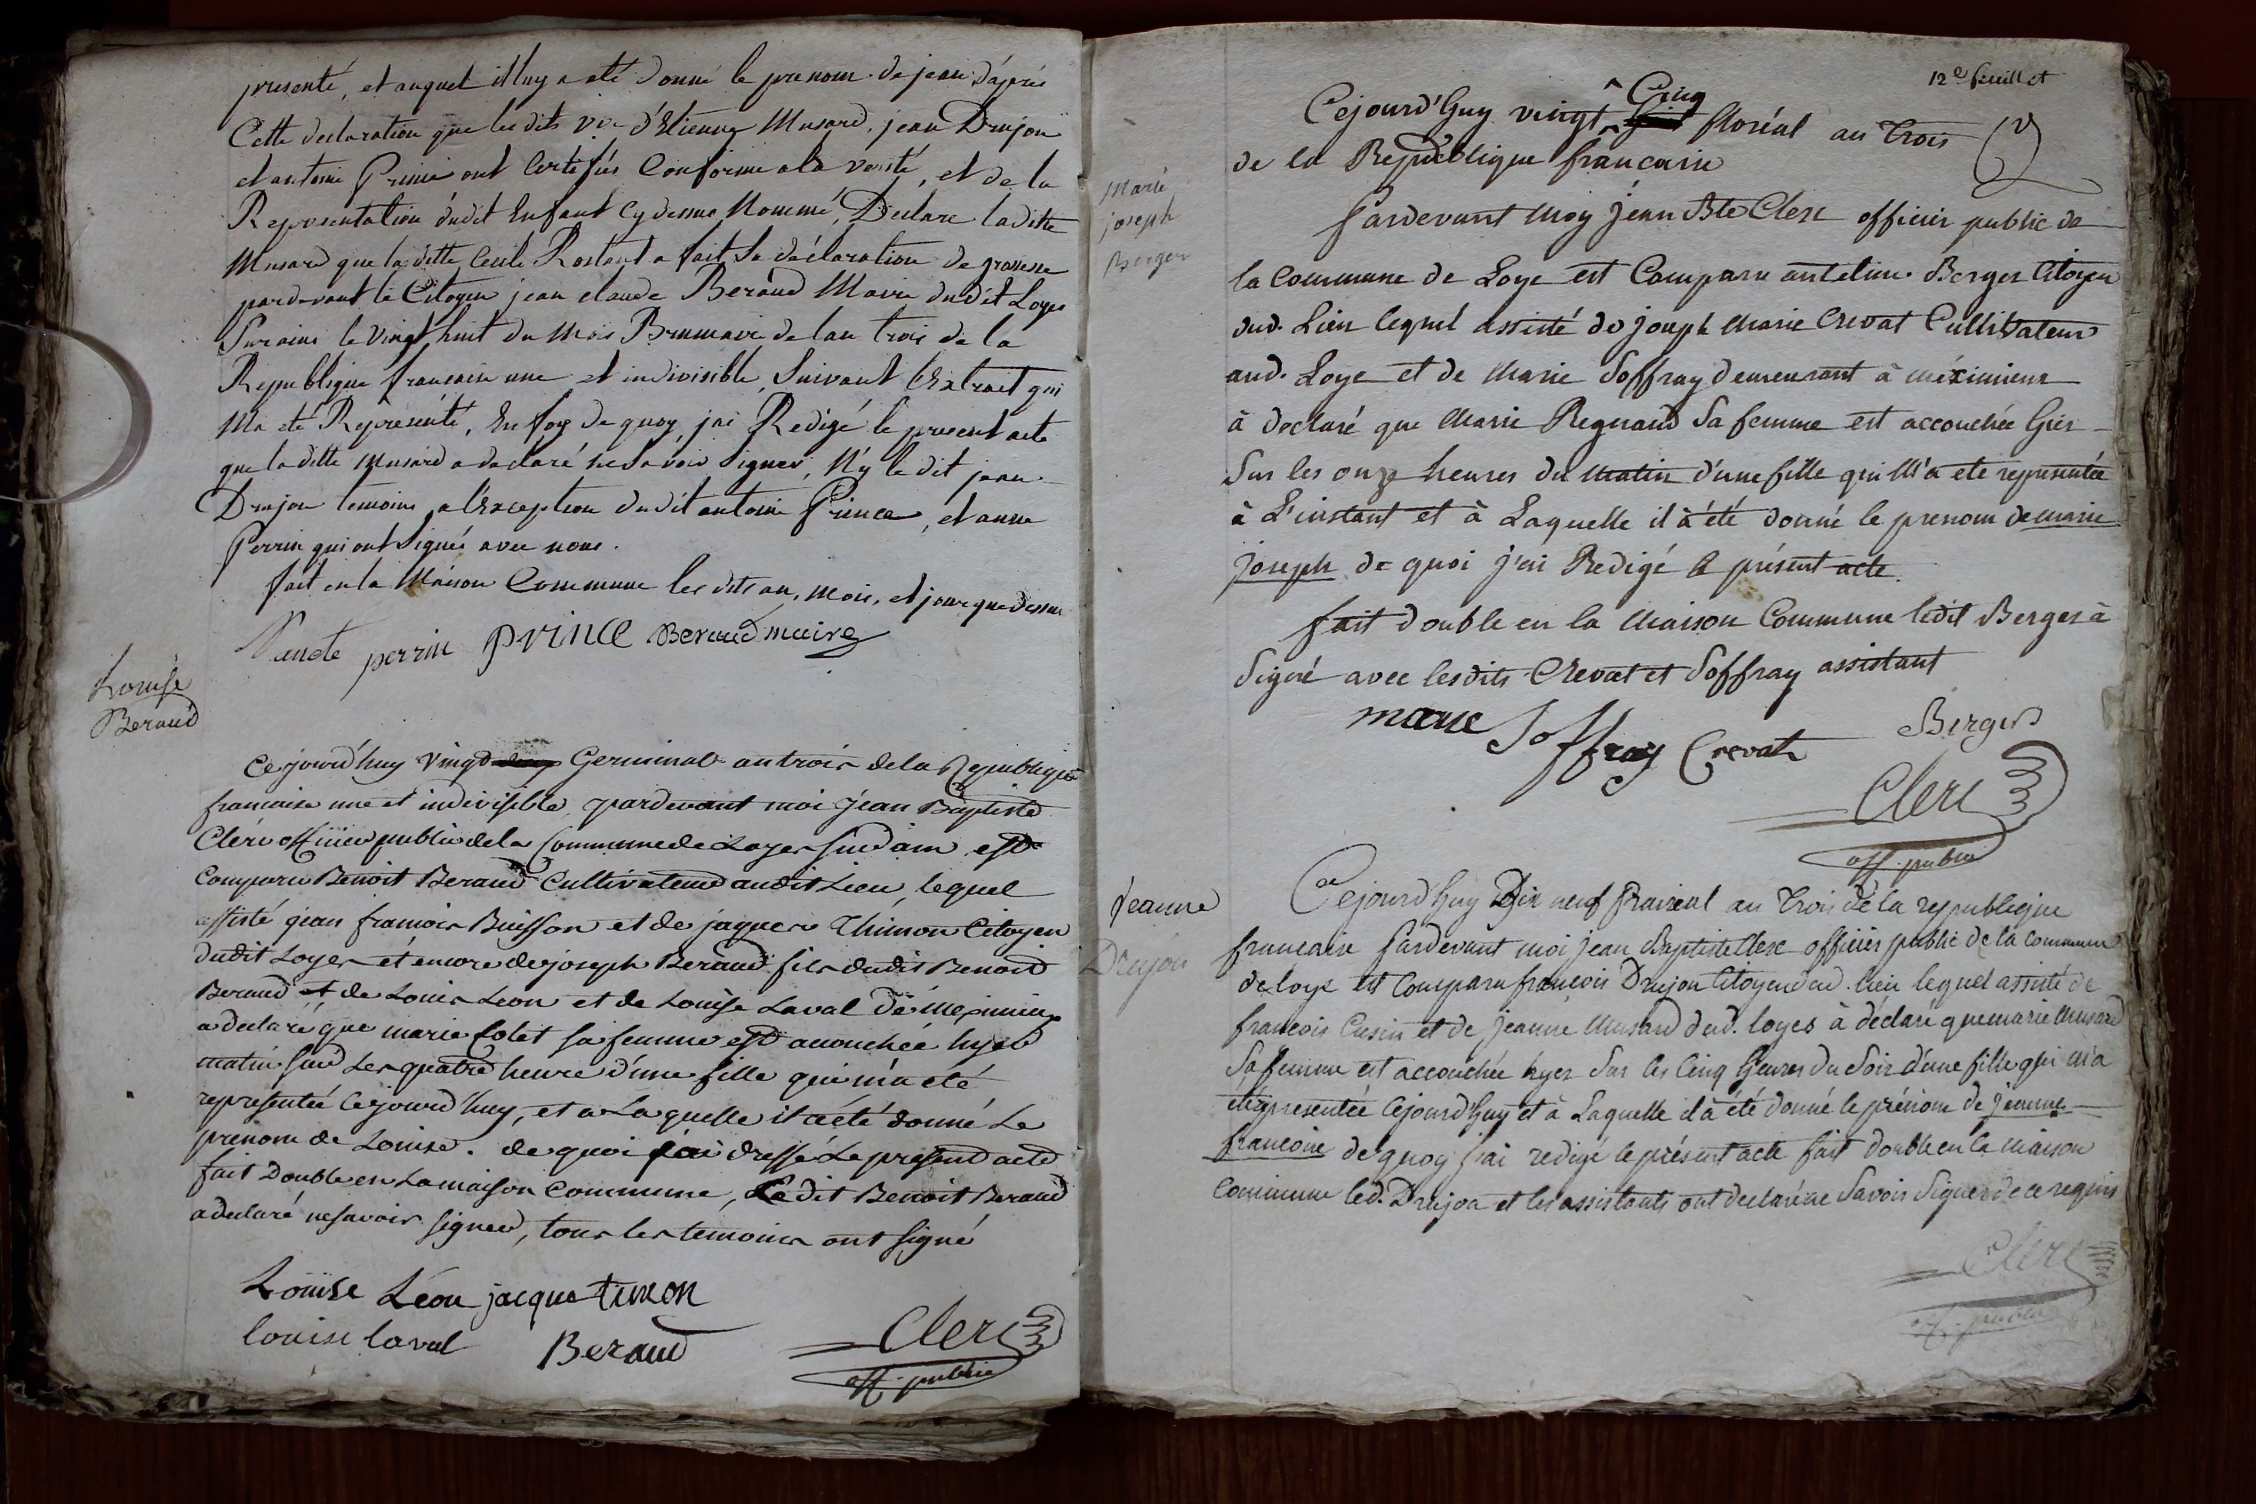 presenté, et auquel il luy a eté donné le prenom de jean d'aprés
Cette declaration que les dits Vve d'Etienne Musard, jean Drujon
et antoine Prince ont Certifiés Conforme a la verité, et de la
Representation dudit Enfant Cy dessus Nommé, Declare la ditte
Musard que la ditte Cecile Rostant a fait Sa déclaration de grossesse
pardevant le Citoyen jean claude Beraud Maire dudit Loyes
Sur ains le Vingt huit du Mois Brumaire de lan trois de la
Republique francaise une et indivisible, Suivant l'Extrait qui
Ma eté Representé, En foy de quoy, jai Redigé le present acte
que la ditte Musard a declaré ne Savoir Signer, N'y le dit jean
Drujon temoins a l'Exception dudit antoine Prince, et anne
Perrin qui ont Signés avec nous.
fait en la Maison Commune les dits an, mois, et jour que dessus
perrin prince Beraud maire
Louise
Beraud
Cejourd'huy vingt Germinal an trois de la Republique
francaise une et indivisible, pardevant moi jean Baptiste
Clerc officier public de la Commune de Loyes sur ain est
comparu Benoit Beraud Cultivateur audit Lieu, lequel
assisté jean francois Buisson et de jaques Thimon Citoyen
dudit Loyes et encore de joseph Beraud fils dudit Benoit
Beraud et de Louis Leon et de Louise Laval de meximieu
a declaré que marie Colet sa femme est acouchée hyer
matin sur Les quatre heure d'une fille qui m'a été
representée Cejourd'huy, et a Laquelle il a été donné Le
prenom de Louise. de quoi j'ai dressé Le present acte
fait Double en La maison Commune, Le dit Benoit Beraud
a declaré ne savoir signer, tous les temoins ont signé
Louise Léon jacque timon
louise laval Beraud
Clerc
off. public
12e feuillet
Cejourd'huy vingt Cinq floréal an Trois
de la République francaise
Marie
joseph
Berger
Pardevant Moy jean Bte Clerc officier public de
la Commune de Loye est Comparu antelme Berger Citoyen
dud. Lieu lequel assisté de joseph Marie Crevat Cultivateur
aud. Loye et de Marie Soffray demeurant à méximieux
à declaré que Marie Regnaud Sa femme est accouchée hier
Sur les onze heures du matin d'une fille qui M'a eté representée
à L'instant et à Laquelle il à été donné le prenom de marie
joseph de quoi j'ai Redigé le présent acte.
fait double en la Maison Commune ledit Berger à
Signé avec lesdits Crevat et Soffray assistant
marie Soffray Crevat Berger
Clerc
off. public
Jeanne
Drujon
Cejourd'huy Dix neuf Prairial an Trois de la republique
francaise Pardevant moi jean Baptiste Clerc officier public de la commune
de loye est Comparu françois Drujon Citoyen dud. lieu lequel assisté de
francois Cusin et de jeanne Musard dud. loyes à déclaré que marie Musard
Sa femme est accouchée hyer Sur les Cinq heures du Soir d'une fille qui m'a
été presentée Cejourd'huy et à Laquelle il à été donné le prénom de jeanne
francoise de quoy j'ai redigé le présent acte fait double en la maison
commune led. Drujon et les assistants ont declaré ne Savoir Signer de ce requis
Clerc
off. public